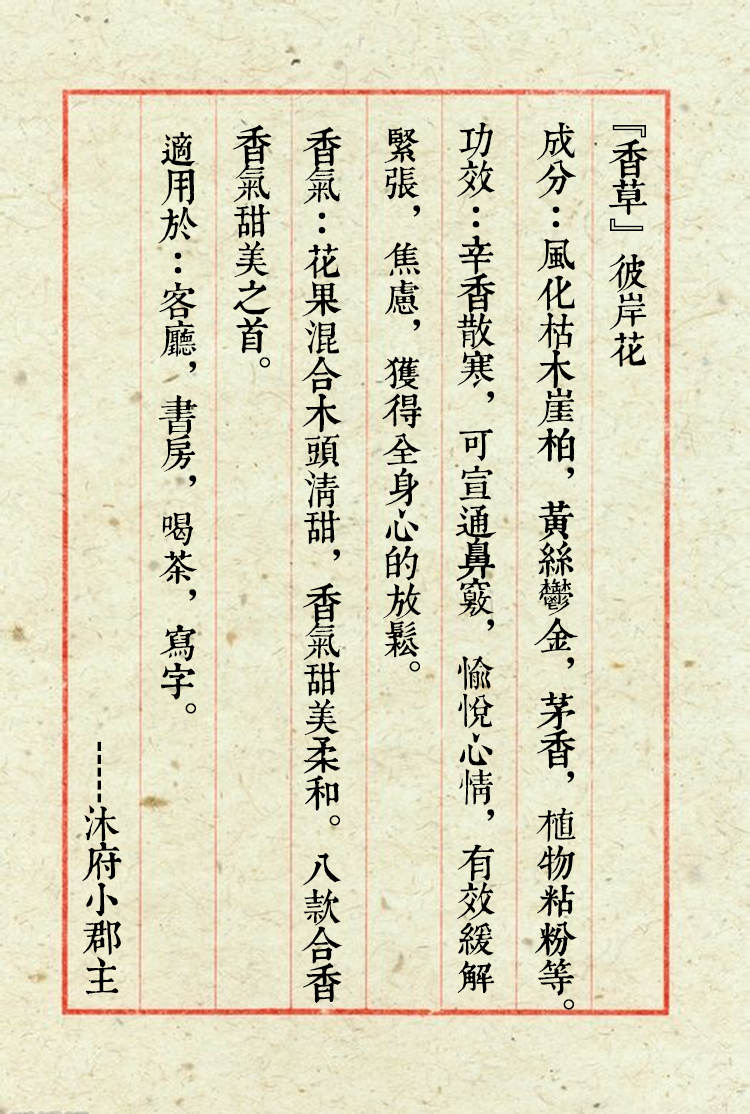 『香草』彼岸花
成分：風化枯木崖柏，黃絲鬱金，茅香，植物粘粉等。
功效：辛香散寒，可宣通鼻竅，愉悅心情，有效緩解
緊張，焦慮，獲得全身心的放鬆。
香氣：花果混合木頭清甜，香氣甜美柔和。八款合香
香氣甜美之首。
適用於：客廳，書房，喝茶，寫字。
------沐府小郡主